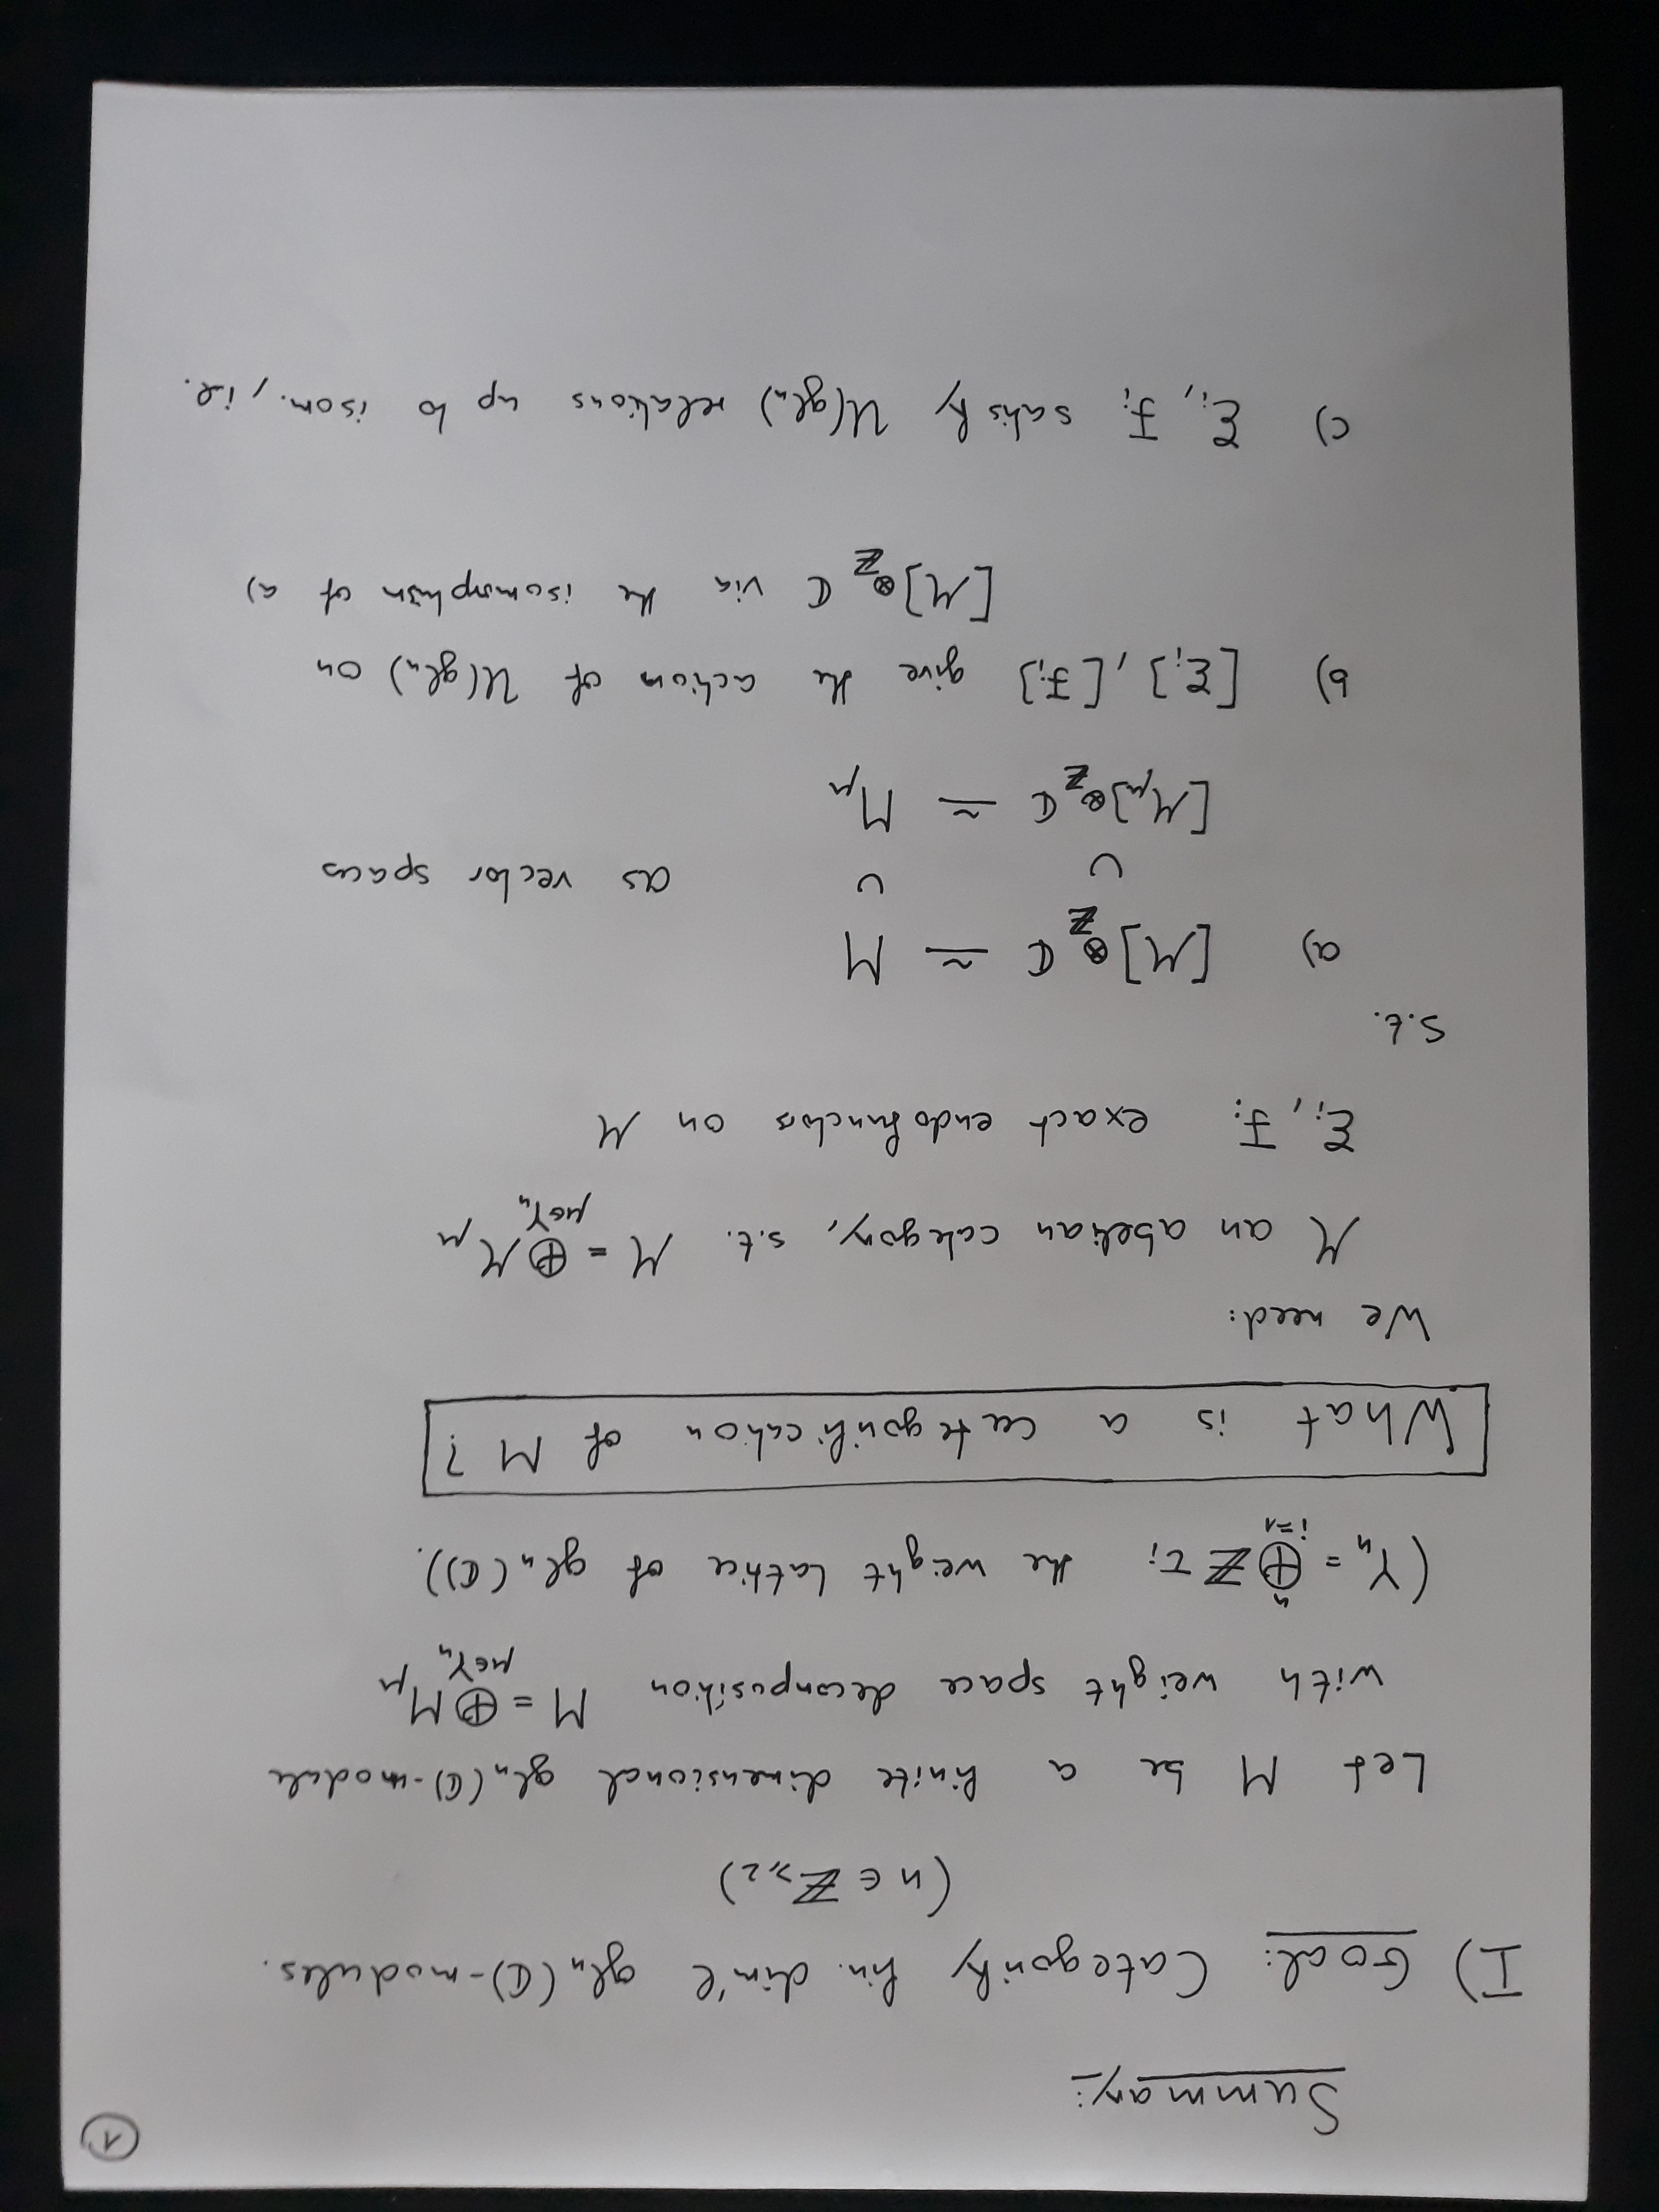 ①
Summary:
I) Goal: Categorify fin. dim'l glₙ(ℂ)-modules.
(n ∈ ℤ≥2)
Let M be a finite dimensional glₙ(ℂ)-module
with weight space decomposition M = ⊕_{μ∈Yₙ} M_μ
(Yₙ = ⊕_{i=1}^{n} ℤ τᵢ the weight lattice of glₙ(ℂ)).
What is a categorification of M?
We need:
ℳ an abelian category, s.t. ℳ = ⊕_{μ∈Yₙ} ℳ_μ
ℰᵢ, ℱᵢ exact endofunctors on ℳ
s.t.
a) [ℳ]⊗_ℤ ℂ ≃ M
∪ ∪ as vector spaces
[ℳ_μ]⊗_ℤ ℂ ≃ M_μ
b) [ℰᵢ], [ℱᵢ] give the action of U(glₙ) on
[ℳ]⊗_ℤ ℂ via the isomorphism of a)
c) ℰᵢ, ℱᵢ satisfy U(glₙ) relations up to isom., i.e.